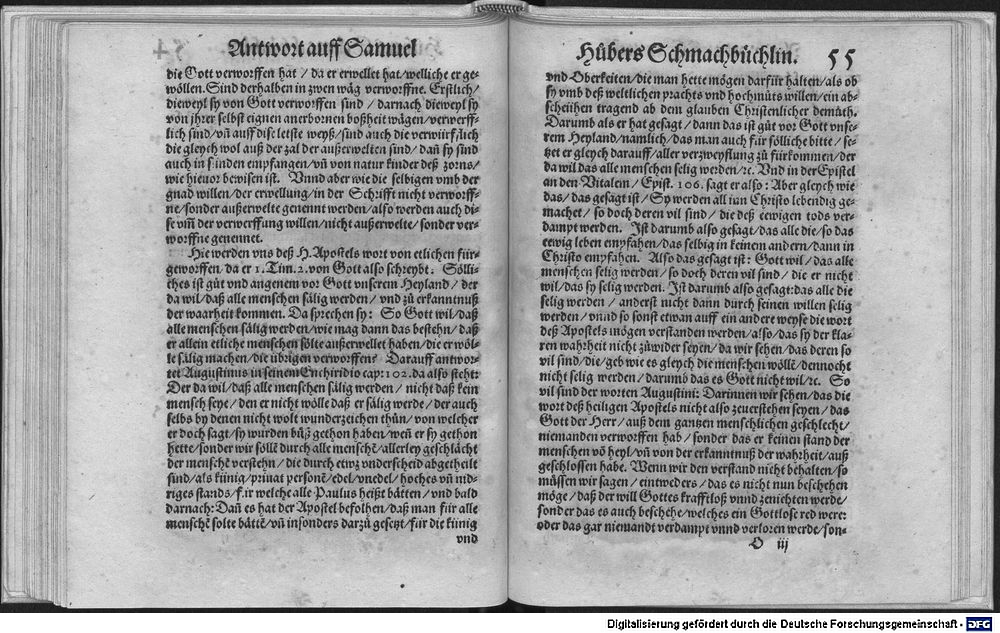 Antwort auff Samuel
die Gott verworffen hat / da er erwellet hat/welliche er ge-
wöllen. Sind derhalben in zwen wäg verworffne. Erstlich/
dieweyl sy von Gott verworffen sind / darnach dieweyl sy
von jhrer selbst eignen anerbornen boßheit wägen/verwerff-
lich sind/vñ auff dise letste weyß/sind auch die verwürfflich
die gleych wol auß der zal der außerwelten sind/ dañ sy sind
auch in sünden empfangen/vñ von natur kinder deß zorns/
wie hieuor bewisen ist. Vnnd aber wie die selbigen vmb der
gnad willen/der erwellung/in der Schrifft nicht verworff-
ne/sonder außerwelte genennt werden/also werden auch di-
se vm̃ der verwerffung willen/nicht außerwelte/sonder ver-
worffne genennet.
Hie werden vns deß H. Apostels wort von etlichen für-
geworffen/da er 1. Tim. 2. von Gott also schreybt. Sölli-
ches ist güt vnd angenem vor Gott vnserem Heyland / der
da wil/daß alle menschen sälig werden / vnd zü erkanntnuß
der waarheit kommen. Da sprechen sy: So Gott wil/daß
alle menschen sälig werden/wie mag dann das bestehn/ daß
er allein etliche menschen sölte außerwellet haben/die er wöl-
le sälig machen/die übrigen verworffens? Darauff antwor-
tet Augustinus in seinem Enchiridio cap: 102. da also steht:
Der da wil/daß alle menschen sälig werden / nicht daß kein
mensch seye / den er nicht wölle daß er sälig werde / der auch
selbs by denen nicht wolt wunderzeichen thün/von welcher
er doch sagt/sy wurden büß gethon haben/weñ er sy gethon
hette/sonder wir söllē durch alle menschē/allerley geschlächt
der menschē verstehn / die durch etwz vnderscheid abgetheilt
sind/als künig/priuat personē/edel/vnedel/hoches vñ nid-
riges stands/für welche alle Paulus heißt bätten/vnd bald
darnach: Dañ es hat der Apostel befolhen/daß man für alle
menschē solte bättē/vñ insonders darzü gesetzt/für die künig
vnd
Hübers Schmachbüchlin. 55
vnd Oberkeiten/die man hette mögen darfür halten/als ob
sy vmb deß weltlichen prachts vnd hochmüts willen/ein ab-
scheühen tragend ab dem glauben Christenlicher demüth.
Darumb als er hat gesagt/ dann das ist güt vor Gott vnse-
rem Heyland/namlich/das man auch für sölliche bitte/ se-
tzet er gleych darauff/aller verzweyflung zü fürkommen/der
da wil das alle menschen selig werden/ꝛc. Vnd in der Epistel
an den Vitalem/ Epist. 106. sagt er also: Aber gleych wie
das/das gesagt ist/ Sy werden all inn Christo lebendig ge-
machet/ so doch deren vil sind / die deß eewigen tods ver-
dampt werden. Ist darumb also gesagt/das alle die/so das
eewig leben empfahen/das selbig in keinem andern/dann in
Christo empfahen. Also das gesagt ist: Gott wil/ das alle
menschen selig werden/ so doch deren vil sind / die er nicht
wil/das sy selig werden. Ist darumb also gesagt:das alle die
selig werden / anderst nicht dann durch seinen willen selig
werden/ vnnd so sonst etwan auff ein andere weyse die wort
deß Apostels mögen verstanden werden/also/das sy der kla-
ren wahrheit nicht züwider seyen/da wir sehen/das deren so
vil sind/die/geb wie es gleych die menschen wöllē/dennocht
nicht selig werden/darumb das es Gott nicht wil/ꝛc. So
vil sind der worten Augustini: Darinnen wir sehen/das die
wort deß heiligen Apostels nicht also zeuerstehen seyen / das
Gott der Herr/ auß dem gantzen menschlichen geschlecht/
niemanden verworffen hab / sonder das er keinen stand der
menschen vō heyl/vñ von der erkanntnuß der wahrheit/auß
geschlossen habe. Wenn wir den verstand nicht behalten/so
müssen wir sagen / eintweders / das es nicht nun beschehen
möge/ daß der will Gottes krafftloß vnnd zenichten werde/
sonder das es auch beschehe/welches ein Gottlose red were:
oder das gar niemandt verdampt vnnd verloren werde/son-
O iij
Digitalisierung gefördert durch die Deutsche Forschungsgemeinschaft - DFG